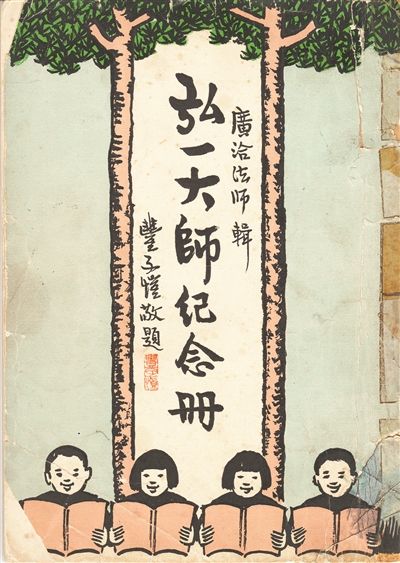 廣洽法師輯
弘一大師紀念冊
豐子愷敬題